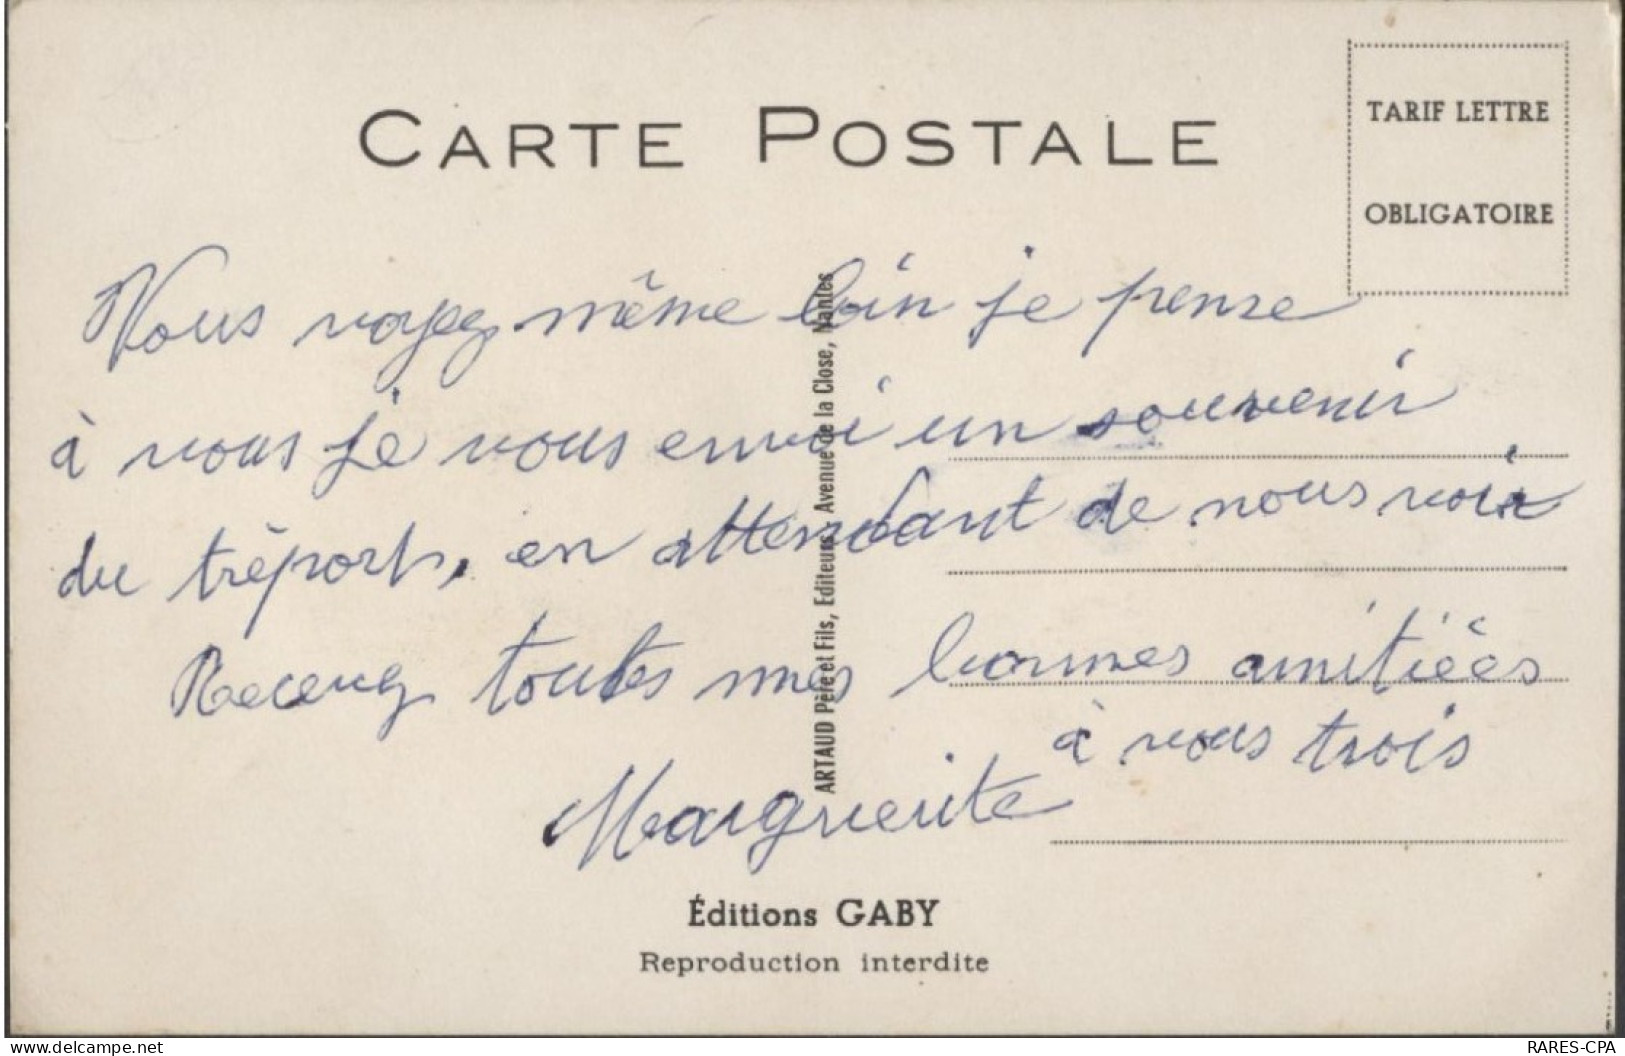 CARTE POSTALE
TARIF LETTRE
OBLIGATOIRE
Vous voyez même loin je pense
à vous je vous envoi un souvenir
du tréport, en attendant de nous voir
Recevez toutes mes bonnes amitiées
à vous trois
Marguerite
ARTAUD Père et Fils, Editeurs, Avenue de la Close, Nantes
Éditions GABY
Reproduction interdite
www.delcampe.net
RARES-CPA